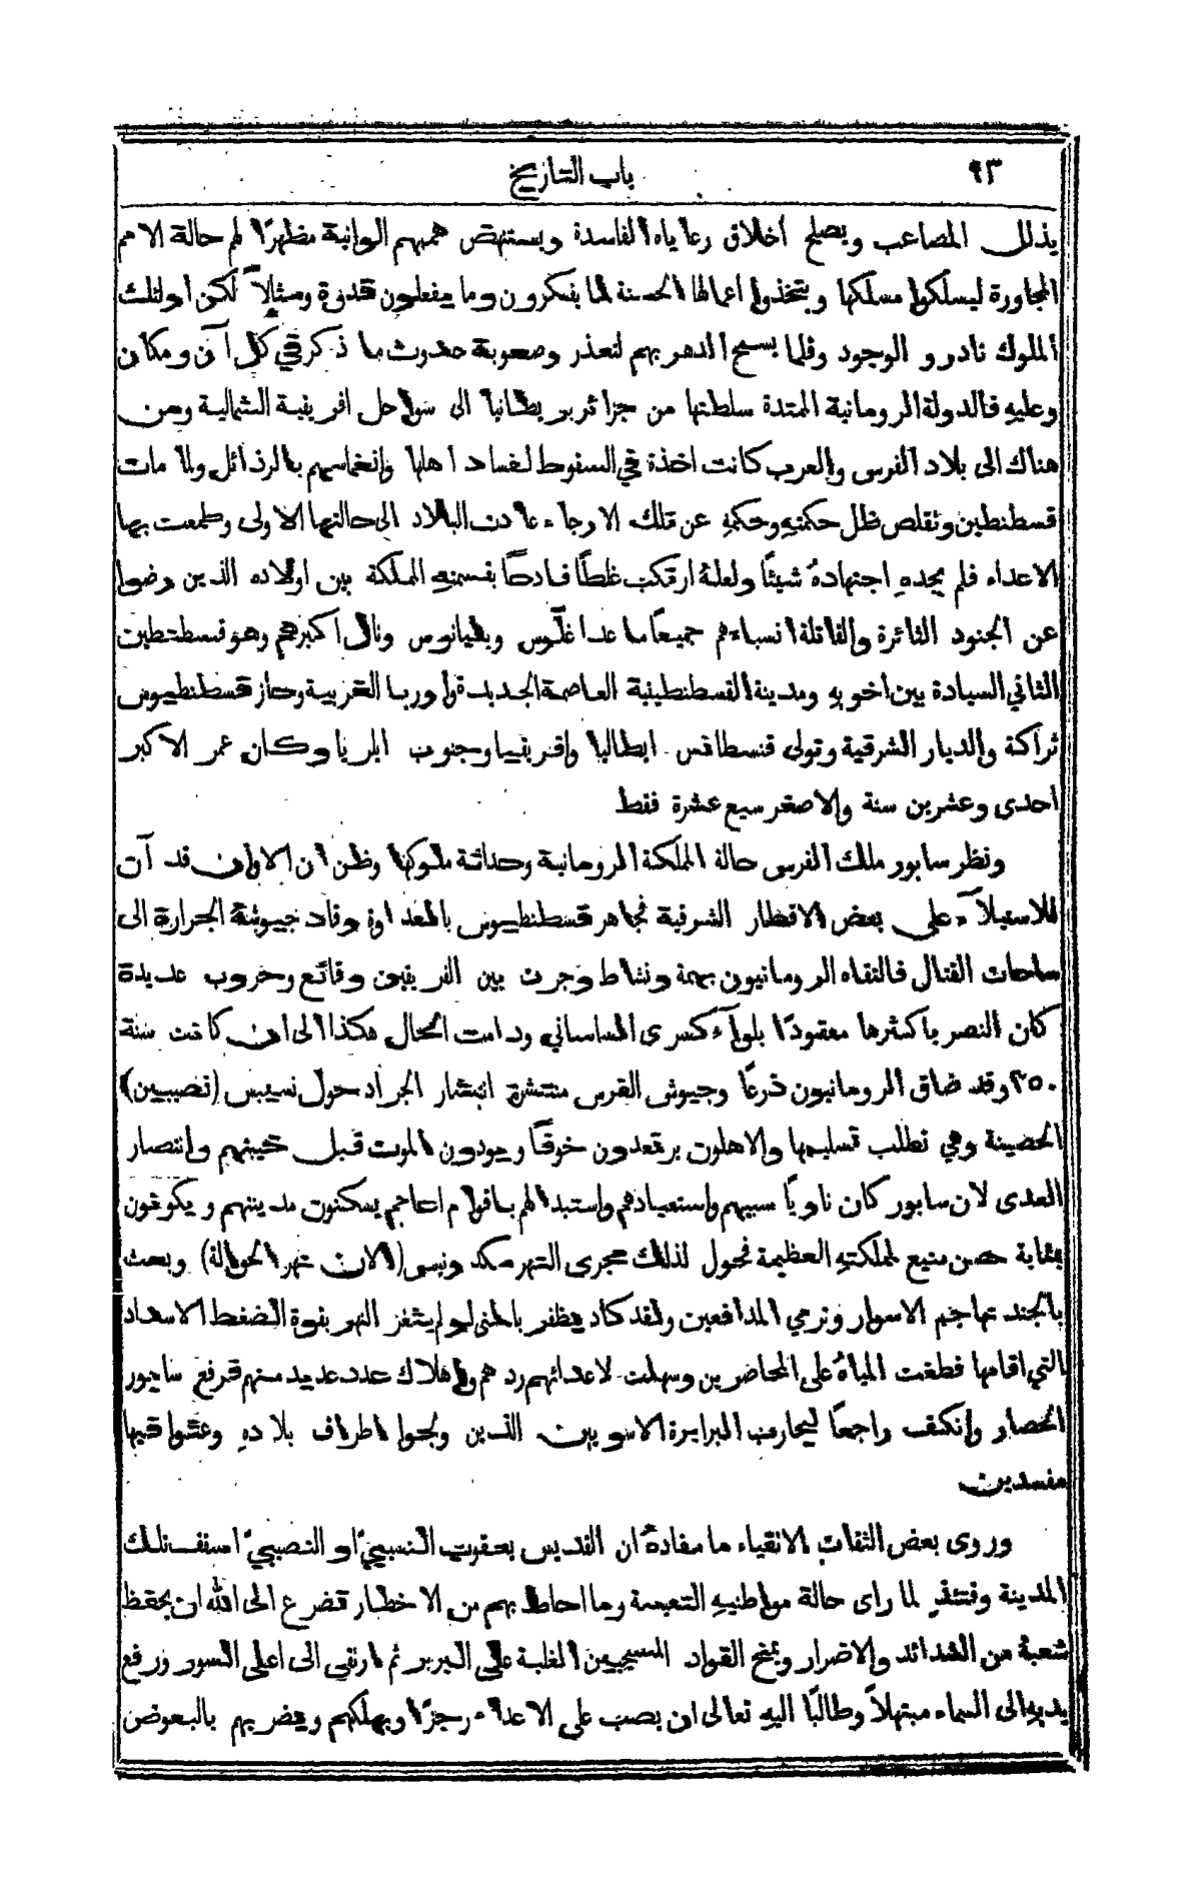 ٩٣
باب التاريخ
يذلل المصاعب ويصلح أخلاق رعاياه الفاسدة ويستنهض هممهم الوانية مظهرًا لهم حالة الامم
المجاورة ليسلكوا مسلكها ويتخذوا اعمالها الحسنة لما يفكرون وما يفعلون قدوة ومثالاً لكن اولئك
الملوك نادرو الوجود وقلما يسمح الدهر بهم لتعذر وصعوبة حدوث ما ذكر في كل آن ومكان
وعليهِ فالدولة الرومانية الممتدة سلطتها من جزائر بريطانيا الى سواحل افريقية الشمالية ومن
هناك الى بلاد الفرس والعرب كانت اخذة في السقوط لفساد اهلها وانغماسهم بالرذائل ولما مات
قسطنطين وتقلص ظل حكمتهِ وحكمهِ عن تلك الارجاء عادت البلاد الى حالتها الاولى وطمعت بها
الاعداء فلم يجدهِ اجتهادهُ شيئًا ولعلهُ ارتكب غلطًا فادحًا بقسمتهِ المملكة بين اولاده الذين رضوا
عن الجنود الثائرة والقاتلة انسباءهم جميعًا ما عدا غلّوس ويوليانوس ونال اكبرهم وهو قسطنطين
الثاني السيادة بين اخويهِ ومدينة القسطنطينية العاصمة الجديدة واوربا الغربية وحاز قسطنطيوس
ثراكة والديار الشرقية وتولى قنسطانس ايطاليا وافريقيا وجنوب ايلريا وكان عمر الاكبر
احدى وعشرين سنة والاصغر سبع عشرة فقط
ونظر سابور ملك الفرس حالة المملكة الرومانية وحداثة ملوكها وظن ان الاوان قد آن
للاستيلاء على بعض الاقطار الشرقية فجاهر قسطنطيوس بالعداوة وقاد جيوشهُ الجرارة الى
ساحات القتال فالتقاه الرومانيون بهمة ونشاط وجرت بين الفريقين وقائع وحروب عديدة
كان النصر باكثرها معقودًا بلوآء كسرى الساساني ودامت الحال هكذا الى ان كانت سنة
٣٥٠ وقد ضاق الرومانيون ذرعًا وجيوش الفرس منتشرة انتشار الجراد حول نسيبس (نصيبين)
الحصينة وهي تطلب تسليمها والاهلون يرتعدون خوفًا ويودون الموت قبل خيبتهم وانتصار
العدى لان سابور كان ناويًا سبيهم واستعبادهم واستبدالهم باقوام اعاجم يسكنون مدينتهم ويكونون
بمثابة حصن منيع لمملكتهِ العظيمة فحول لذلك مجرى النهر مكدونيس (الان نهر الهوالة) وبعث
بالجند تهاجم الاسوار وترمي المدافعين ولقد كاد يظفر بالمنى لو لم يثغر النهر بقوة الضغط الاسداد
التي اقامها فطغت المياه على المحاصرين وسهلت لاعدائهم ردهم واهلاك عدد عديد منهم فرفع سابور
الحصار وانكف راجعًا ليحارب البرابرة الاسويين الذين ولجوا اطراف بلادهِ وعثوا فيها
مفسدين
وروى بعض الثقات الاتقياء ما مفادهُ ان القديس يعقوب النسيبيّ او النصيبيّ اسقف تلك
المدينة وقتئذٍ لما راى حالة مواطنيهِ التعيسة وما احاط بهم من الاخطار تضرع الى الله ان يحفظ
شعبهُ من الشدائد والاضرار ويمنح القواد المسيحيين الغلبة على البربر ثم ارتقى الى اعلى السور ورفع
يديهِ الى السماء مبتهلاً وطالبًا اليهِ تعالى ان يصب على الاعداء رجزًا ويهلكهم ويضربهم بالبعوض